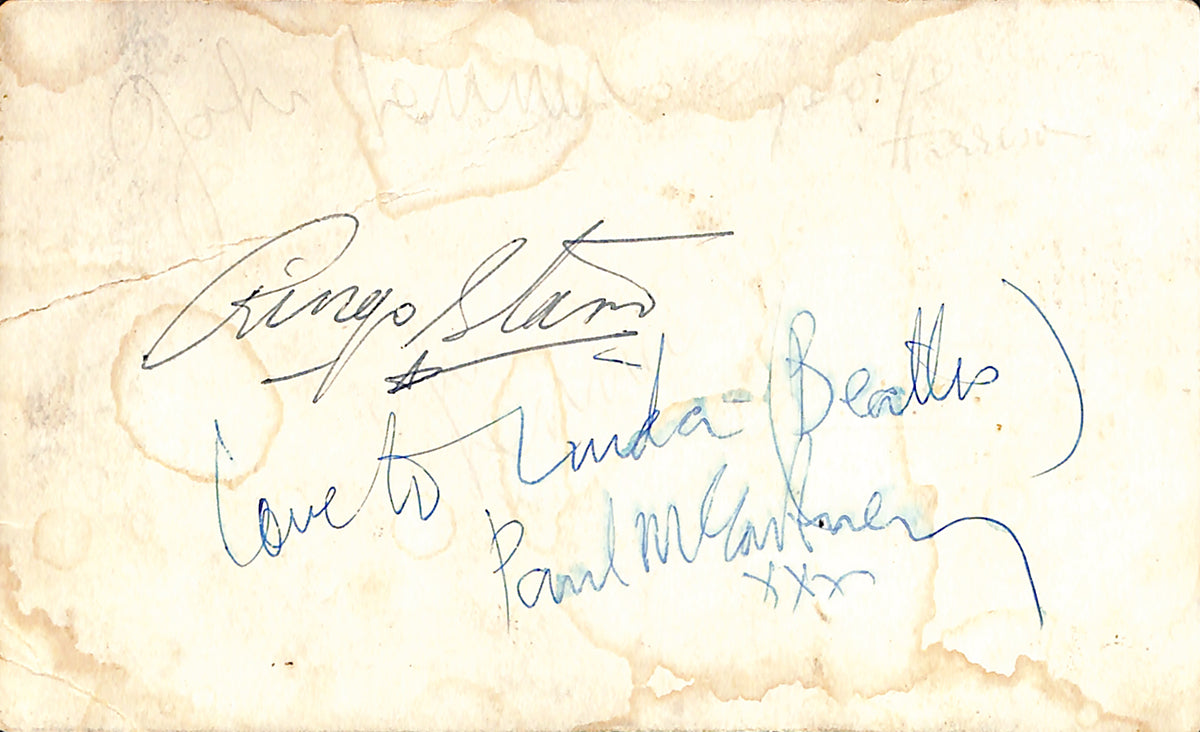 John Lennon George
Harrison
Ringo Starr
Love to Linda - (Beatles)
Paul McCartney
xxx